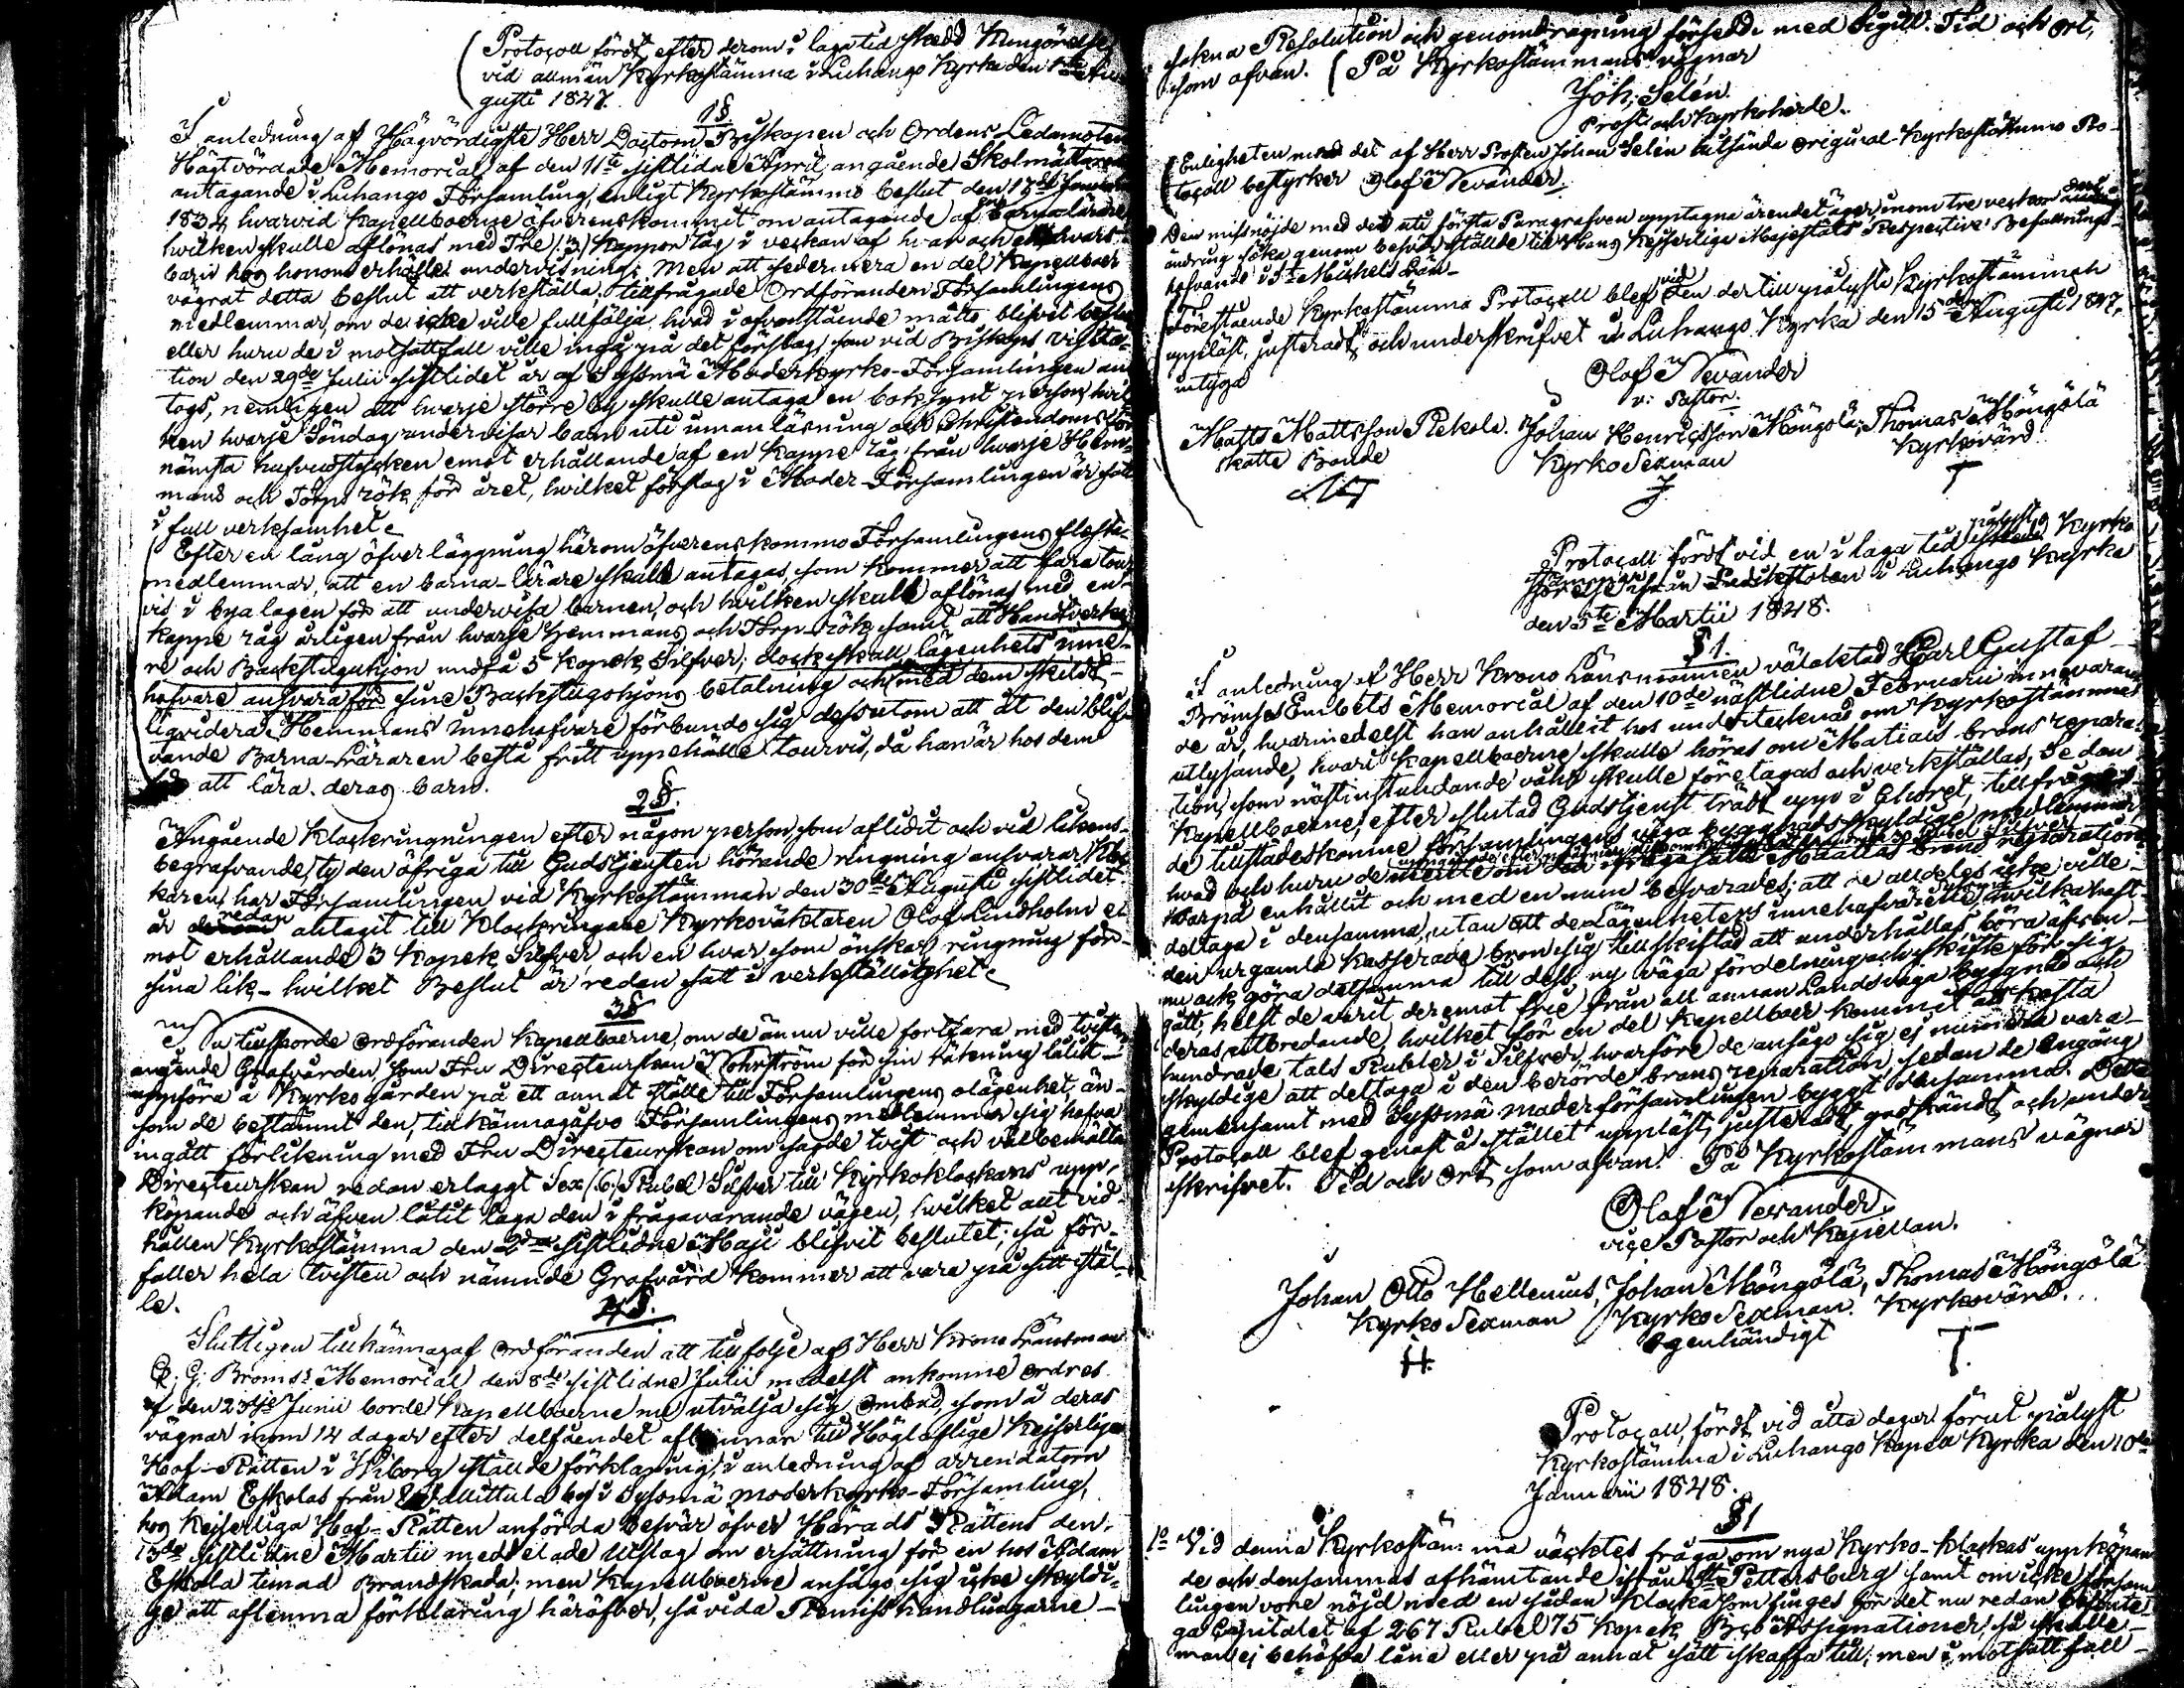 Protocoll fördt, efter derom i laga tid skedd Kungörelse,
vid allmän Kyrkostämma i Luhango Kyrka den 1sta Au-
gusti 1847.
1§.
I anledning af Högvördigste Herr Doctorn, Biskopen och Ordens Ledamoten
Högtvördande Memorial af den 11te sistlidne April, angående Skolmästarens
antagande i Luhango Församling, enligt Kyrkostämmo beslut den 17de Januarii
1834 hvarvid Kapellboerne öfverenskommit om antagande af en barnalärare
hvilken skulle aflönas med Tre /:3:/ Kappor råg i veckan af hvar och en hvars
barn hos honom erhåller undervisning; Men att sedermera en del Kapellboer
vägrat detta beslut att verkställa; tillfrågade Ordföranden Församlingens
medlemmar, om de icke ville fullfölja hvad i ofvanstående måtto blifvit beslutit
eller huru de i motsatt fall ville ingå på det förslag, som vid Biskops visita-
tion den 29de Julii sistlidet år af Sysmä Moderkyrko-Församlingen an-
togs, nemligen att hvarje större by skulle antaga en boksynt person, hvil-
ken hvarje Söndag undervisar barn uti innanläsning och Christendoms för-
nämsta hufvudstycken emot erhållande af en Kappe råg från hvarje Hem-
mans och Torps rök för året, hvilket förslag i Moder-Församlingen är satt
i full verksamhet.
Efter en lång öfverläggning härom öfverenskommo Församlingens flesta
medlemmar, att en barna-lärare skulle antagas, som kommer att fara tour-
vis i byalagen för att undervisa barnen, och hvilken skulle aflönas med en
kappe råg årligen från hvarje Hemmans och Torp-rök samt att Handtverka-
re och Backstuguhjon undfå 5 Kopek Silfver; dock skall lägenhets inne-
hafvare ansvara för sine Backstugohjons betalning och med dem skildt
liqvidera. Hemmans Innehafvare förbundo sig dessutom att åt den blif-
vande Barna-Läraren bestå fritt uppehälle tourvis, då han är hos dem
för att lära deras barn.
2§.
Angående Klockringningen efter någon person, som aflidit och vid likens
begrafvande, ty den öfriga till Gudstjensten hörande ringning ansvarar Kloc-
karen, har Församlingen vid Kyrkostämman den 30de Augusti sistlidet
år redan antagit till Klockringare Kyrkoväktaren Olof Lindholm e-
mot erhållande 3 Kopek Silfver och en hvar, som önskar ringning för
sina lik - hvilket Beslut är redan satt i verkställighet.
3§
Nu tillsporde Ordföranden Kapellboerne, om de ännu ville fortfara med tvisten
angående Grafvården, som Fru Directeurskan Nohrström för sin räkning låtit
uppföra å Kyrkogården på ett annat ställe till Församlingens olägenhet, än
som de bestämt den, tillkännagåfvo Församlingens medlemmar sig hafva
ingått förlikning med Fru Directeurskan om sagde tvist och välbemälta
Directeurskan redan erlaggt Sex /:6:/ Rubel Silfver till Kyrkoklockans upp-
köpande och äfven låtit laga den i frågavarande vägen, hvilket allt vid
hållen Kyrkostämma den 2dra sistlidne Maji blifvit beslutet; så för-
faller hela tvisten och nämnde Grafvård kommer att vara på sitt stäl-
le.
4§.
Slutligen tillkännagaf Ordföranden att till följe af Herr Krono Länsman
C. G. Broms's Memorial den 8de sistlidne Julii medelst ankomne Ordres
af den 23dje Junii borde Kapellboerne nu utvälja sig ombud, som å deras
vägnar inom 14 dagar efter delfåendet aflemnar till Höglofliga Kejserliga
Hof-Rätten i Wiborg ställde förklaring i anledning af arrendatorn
Adam Eskolas från Wallittula by i Sysmä moderkyrko-Församling,
hos Kejserliga Hof-Rätten anförda besvär öfver Härads Rättens den
13de sistlidne Martii meddelade Utslag om ersättning för en hos Adam
Eskola timad Brandskada; men Kapellboerne ansågo sig icke skyldi-
ge att aflemna förklaring häröfver, såvida Remisshandlingarne
sakna Resolution och genomdragning försedd med Sigill. Tid och Ort,
som ofvan. På Kyrkostämmans vägnar
Joh: Selén.
Prost och Kyrkoherde.
Enligheten med det af Herr Prosten Johan Selén utsände original Kyrkostämmo Pro-
tocoll bestyrker Olof Nevander.
Den missnöjde med det uti första Paragrafven upptagna ärendet äger inom tre veckor derå
ändring söka genom besvär ställde till Hans Kejserliga Majestäts Respective Befallnings-
hafvande i St Michels Län.
Förestående Kyrkostämma Protocoll blef vid den dertill pålyste Kyrkostämman
uppläst, justeradt och underskrifvet i Luhango Kyrka den 15de Augusti 1847,
intyga
Olof Nevander
v: Pastor.
Matts Mattsson Pekola. Johan Henricsson Möngölä, Thomas Möngölä
skatte Bonde Kyrko Sexman Kyrkovärd
J T
Protocoll fördt vid en i laga tid pålyst Kyrko
stämma från Predikstolen i Luhango Kyrka
den 5te Martii 1848.
§ 1.
I anledning af Herr Krono Länsmannen välaktad Carl Gustaf
Bröms's Embets Memorial af den 10de nästlidne Februarii innevaran-
de år, hvarmedelst han anhållit hos undertecknad om Kyrkostämmas
utlysande, hvari Kapellboerne skulle höras om Matiais brons repara-
tion, som nästinstundande vår skulle företagas och verkställas; Sedan
Kapellboerne, efter slutad Gudstjenst trädt upp i Choret, tillfrågades
de tillstädeskomne församlingens väga byggnadsskyldige medlemmar,
hvad och huru de brons reparation
Hvarpå enhälligt och med en mun besvarades; att de alldeles icke ville
deltaga i densamma, utan att de Lägenheters innehafvare, hvilka haft
den urgamla Kasserade bron sig tillskiftad att underhållas, böra äfven
nu ock göra detsamma till dess ny väga fördelning och skifte för sig
gått, helst de varit deremot frie från all annan Landsväga byggnad och
deras utbredande, hvilket för en del Kapellboer kommit att kosta
hundrade tals Rubler i Silfver, hvarföre de ansågo sig ej numera vara
skyldige att deltaga i den berörde brons reparation, sedan de engång
gemensamt med Sysmä moderförsamlingen byggt densamma. Detta
Protocoll blef genast å stället uppläst, justeradt, godkändt och under-
skrifvet. Tid och Ort, som ofvan. På Kyrkostämmans vägnar
Olof Nevander.
vice Pastor och Kapellan.
Johan Otto Hellenius, Johan Möngölä, Thomas Möngölä
Kyrko Sexman Kyrko Sexman Kyrkovärd.
H. Egenhändigt T.
Protocoll, fördt vid åtta dagar förut pålyst
Kyrkostämma i Luhango Kapell Kyrka den 10de
Januarii 1848.
§ 1
1o Vid denna Kyrkostämma väcktes fråga om nya Kyrko-klockas uppköpan-
de och densammas afhämtande ifrån St Pettersburg samt om icke försam
lingen vore nöjd med en sådan klocka som finges för det nu redan
ga Capitalet af 267 Rubel 75 Kopek Bco Assignationer, så skulle
man ej behöfva låna eller på annat sätt skaffa till; men i motsatt fall